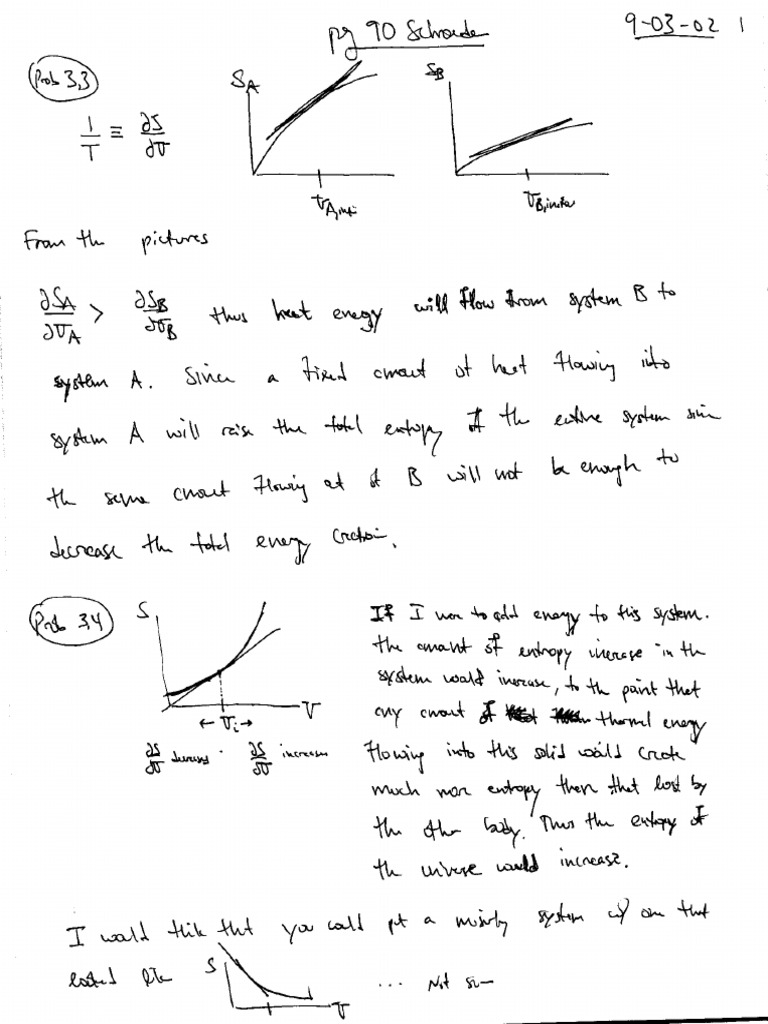 pg 90 Schroeder
9-03-02 1
Prob 3.3
1/T ≡ ∂S/∂U
S_A
U_A,init
S_B
U_B,initial
From the pictures
∂S_A/∂U_A > ∂S_B/∂U_B thus heat energy will flow from system B to
system A. Since a fixed amount of heat flowing into
system A will raise the total entropy of the entire system since
the same amount flowing out of B will not be enough to
decrease the total energy
Prob 3.4
S
U
← U_i →
∂S/∂U decreases ∂S/∂U increases
If I were to add energy to this system.
the amount of entropy increase in the
system would increase, to the point that
any amount of thermal energy
flowing into this solid would create
much more entropy then that lost by
the other body. Thus the entropy of
the universe would increase.
I would think that you could put a miserly system w/ one that
looked like
S
U
... Not